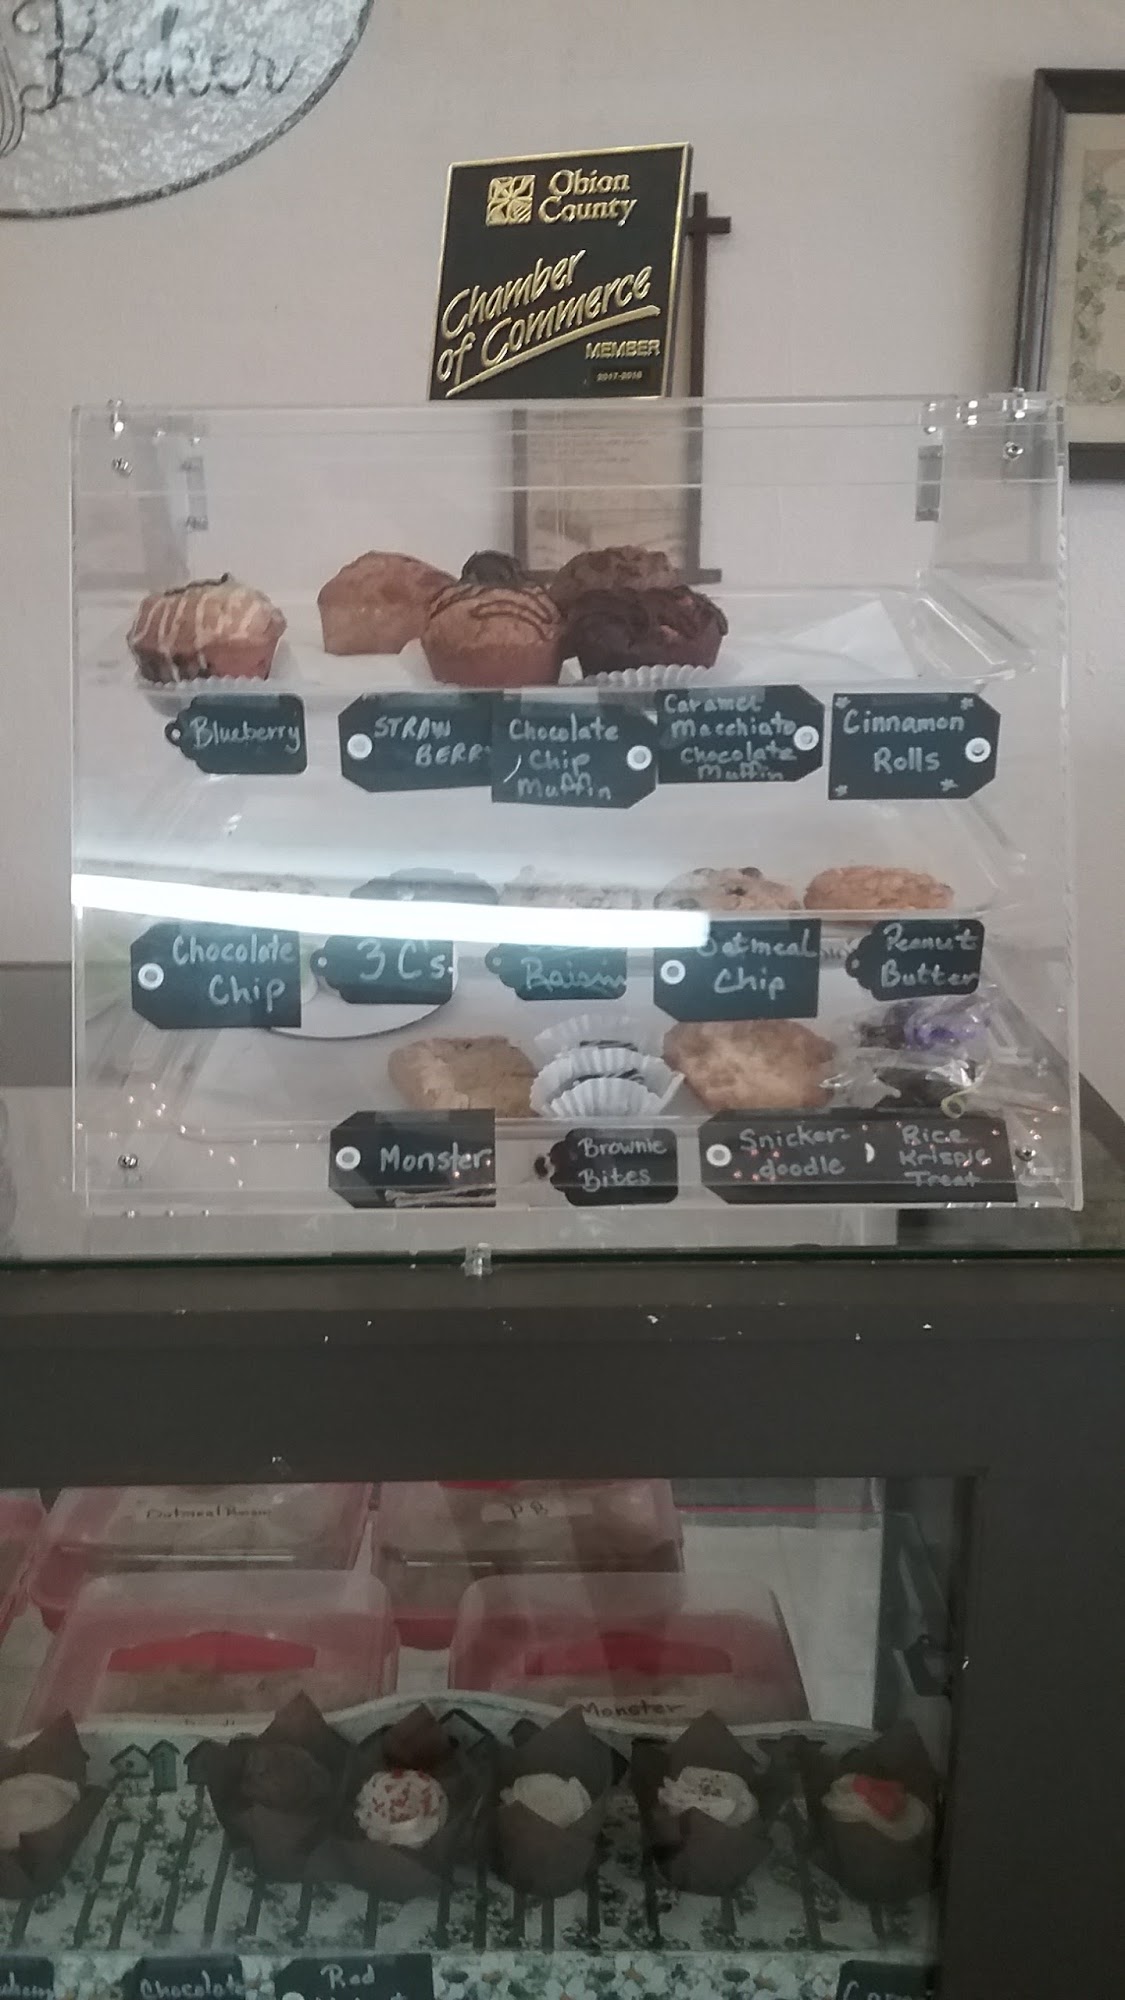 Baker
Obion
County
Chamber
of Commerce
MEMBER
2017-2018
Blueberry
STRAW
BERR
Chocolate
Chip
Muffin
Caramel
Macchiato
Chocolate
Muffin
Cinnamon
Rolls
Chocolate
Chip
3 C's
Raisin
Oatmeal
Chip
Peanut
Butter
Monster
Brownie
Bites
Snicker-
doodle
Rice
Krispie
Treat
Oatmeal Raisin
PB
Monster
Chocolate
Red